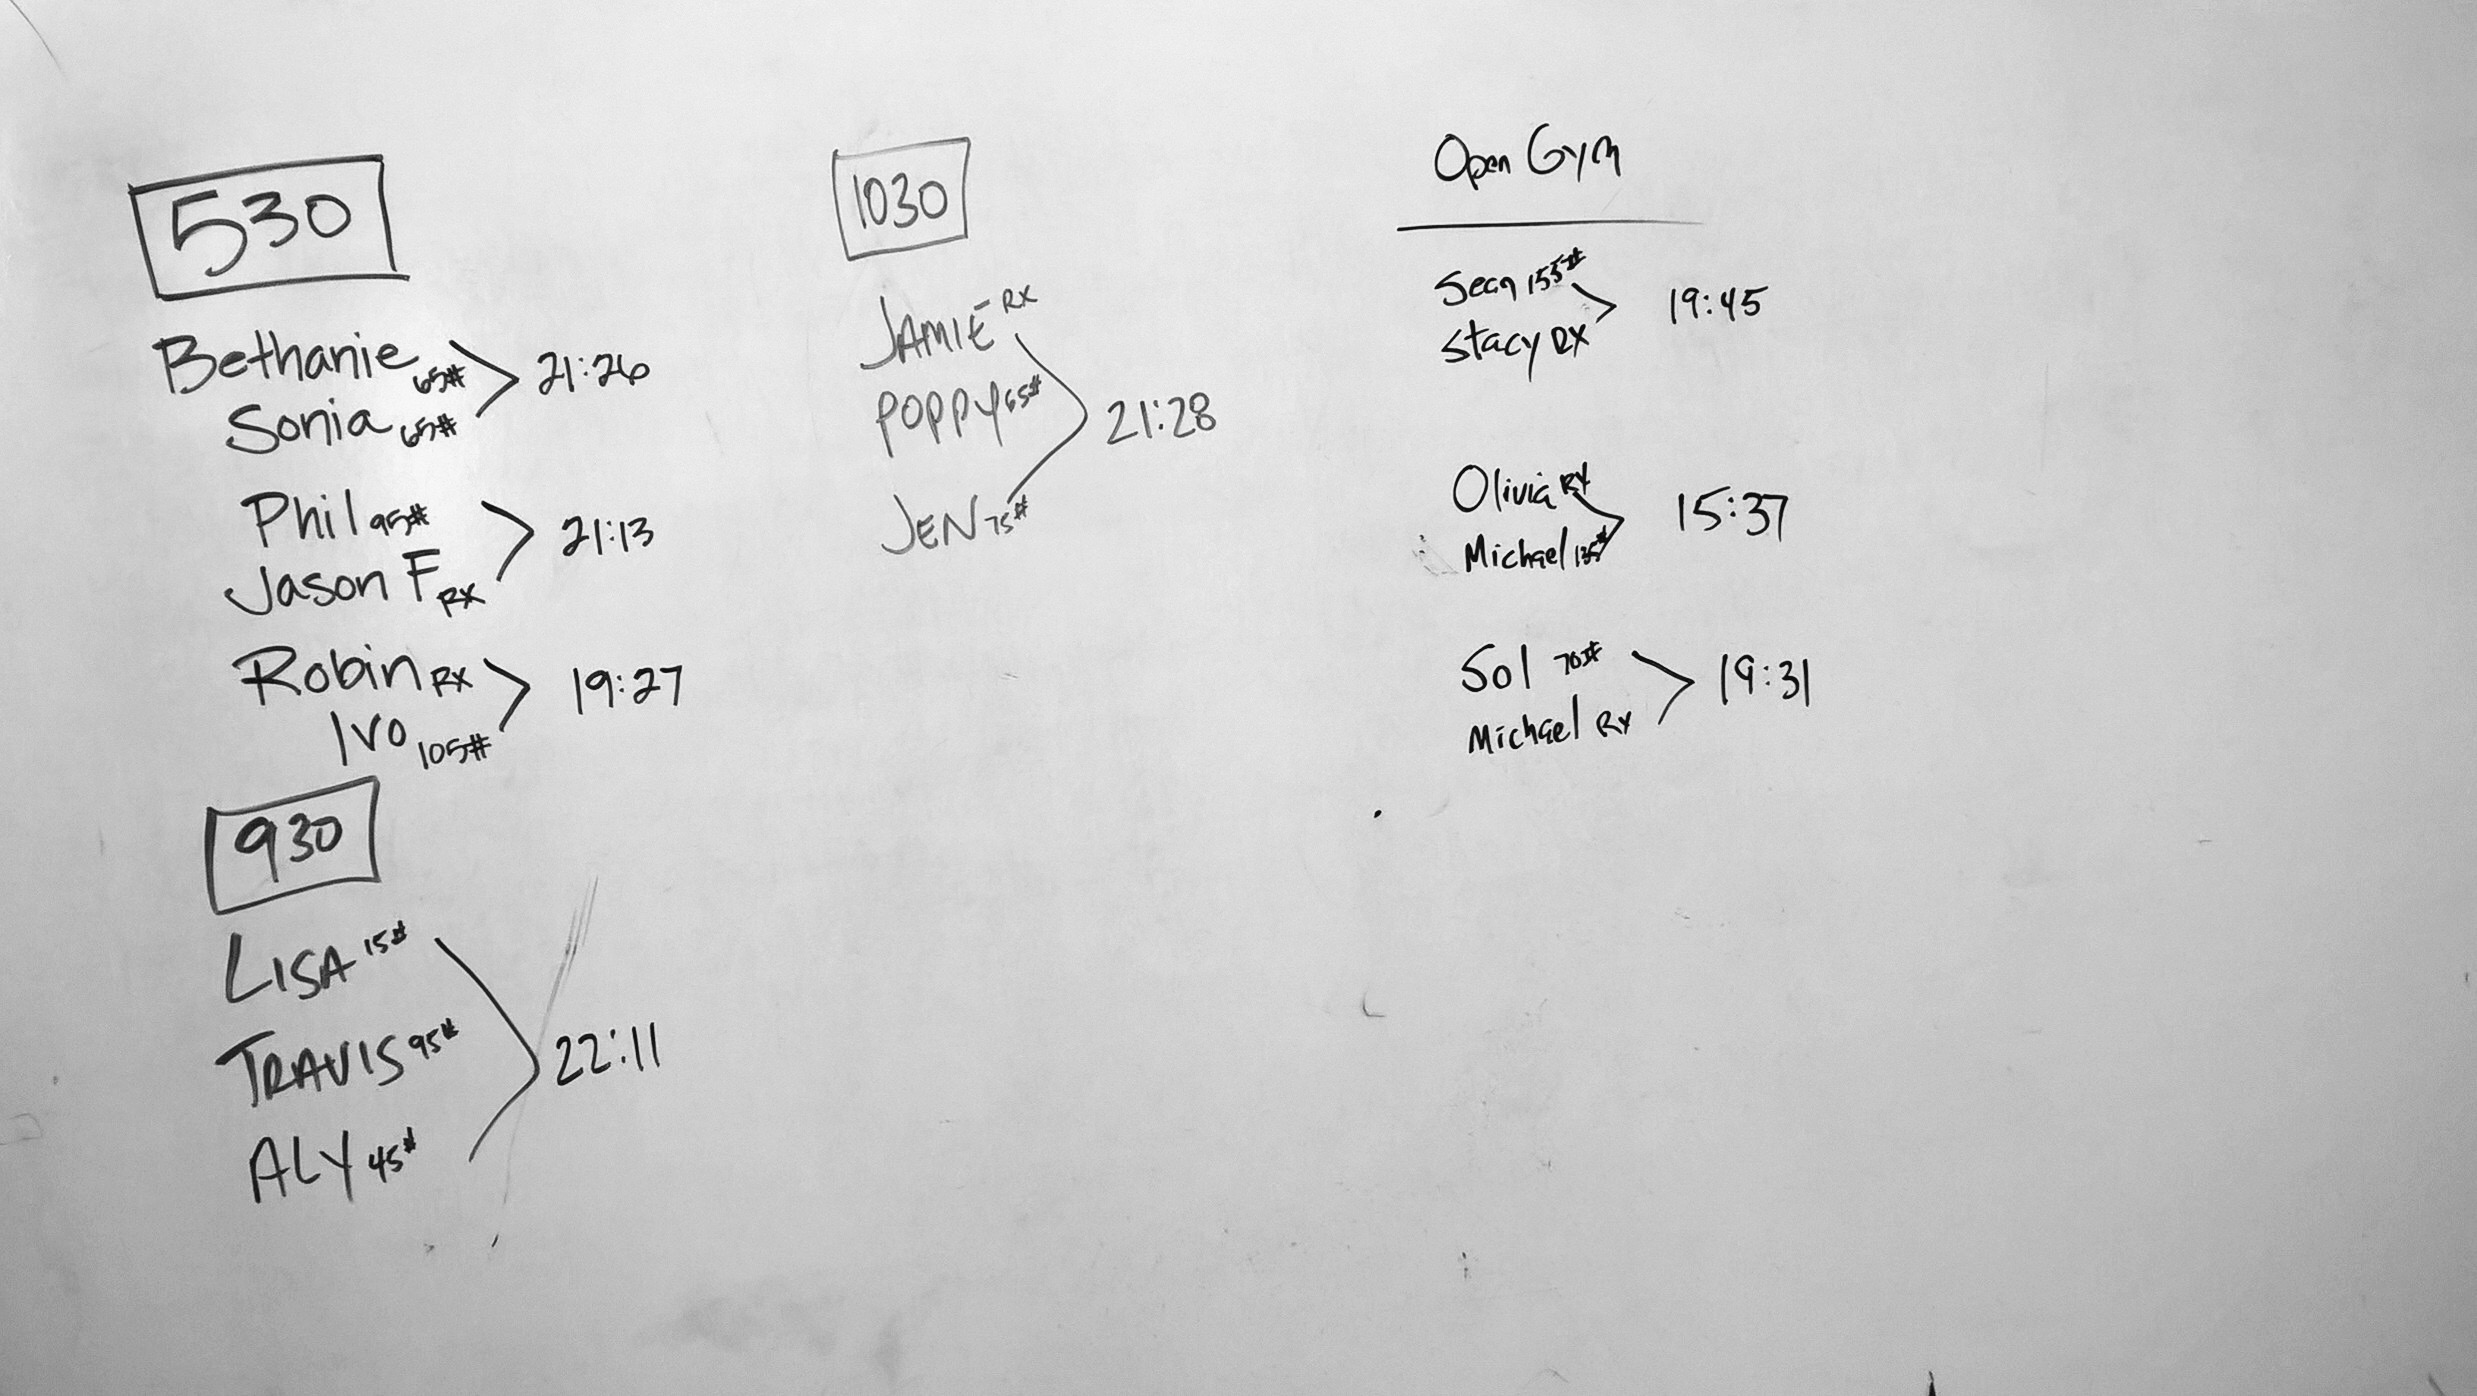 530
Bethanie 65#
Sonia 65#
21:26
Phil 95#
Jason F RX
21:13
Robin RX
Ivo 105#
19:27
930
LISA 15#
TRAVIS 95#
ALY 45#
22:11
1030
JAMIE RX
POPPY 65#
JEN 75#
21:28
Open Gym
Sean 155#
Stacy RX
19:45
Olivia RX
Michael 135#
15:37
Sol 70#
Michael RX
19:31